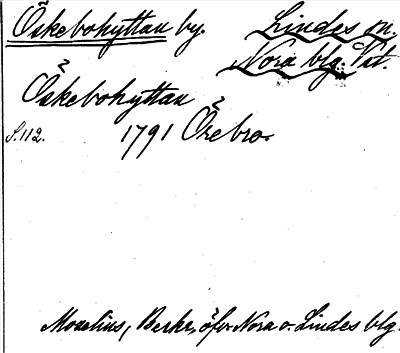 Öskebohyttan by. Lindes sn.
Nora blg. Väst.
Öskebohyttan
S. 112. 1791 Örebro.
Morelius, Beskr. öfv. Nora o. Lindes blg.